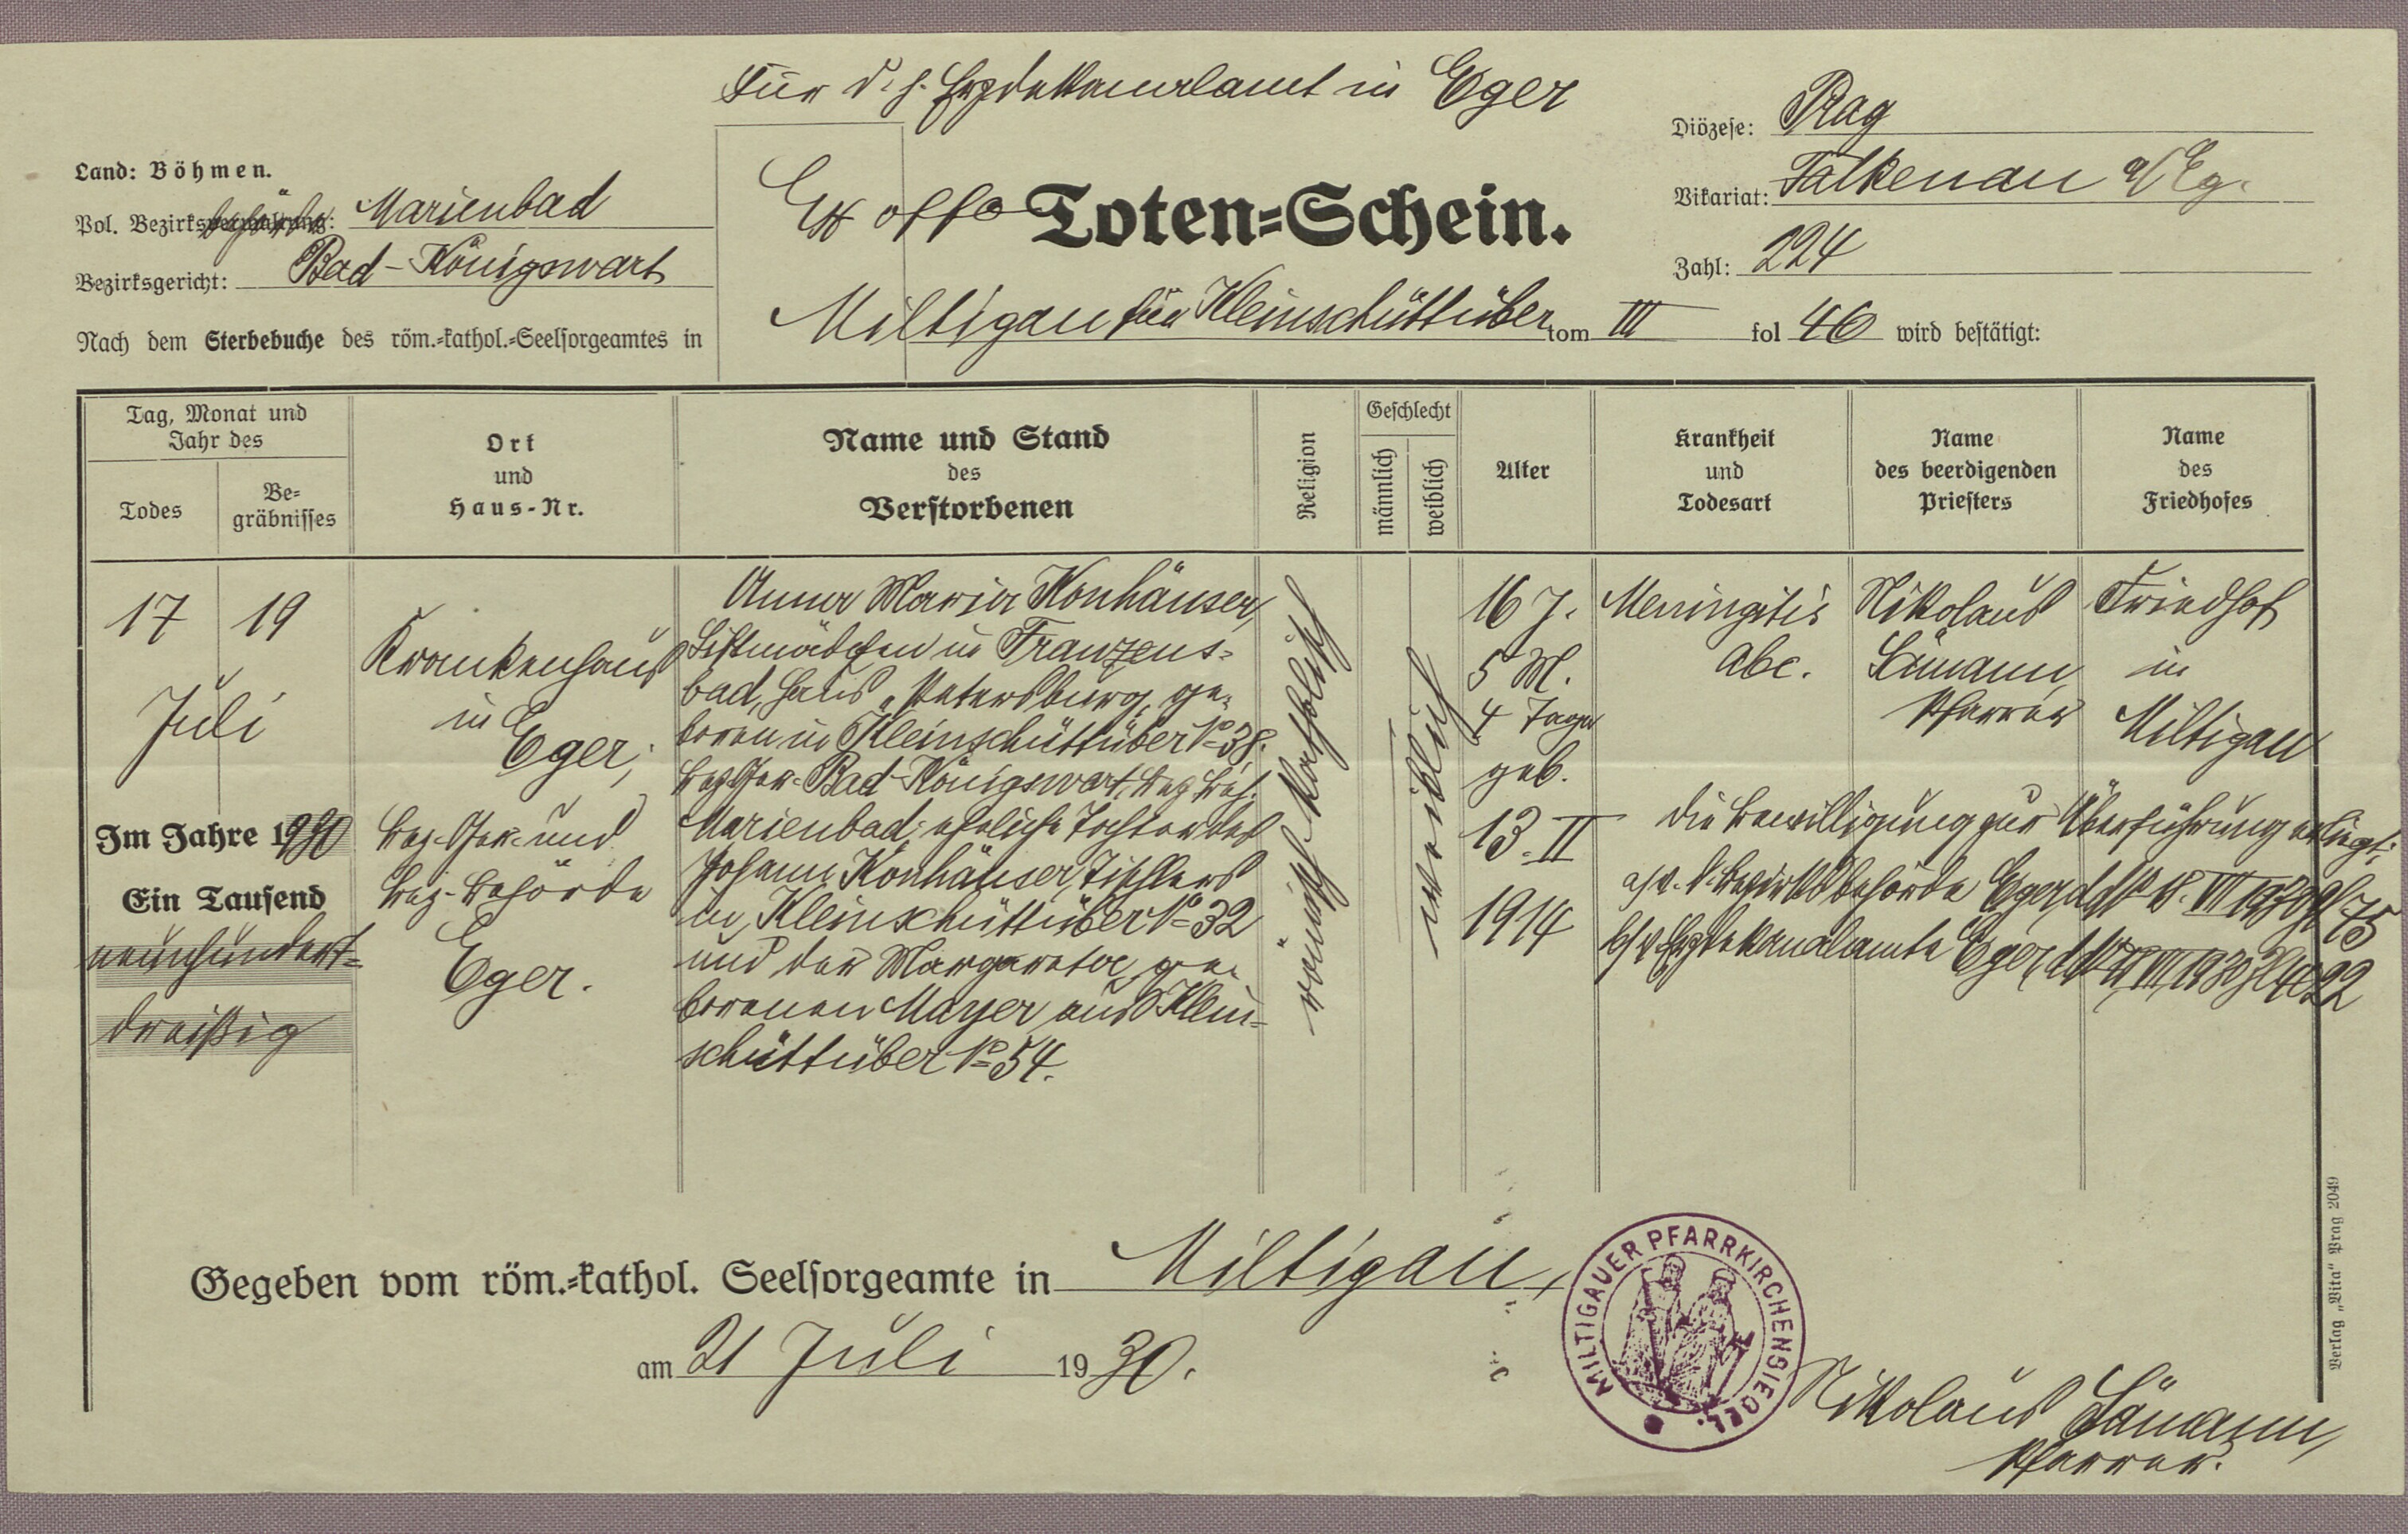 Für d. h. Erzdekanalamt in Eger
Land: Böhmen.
Pol. Bezirksbehörde: Marienbad
Bezirksgericht: Bad-Königswart
Ex offo Toten=Schein.
Diözese: Prag
Vikariat: Falkenau a/Eg.
Zahl: 224
Nach dem Sterbebuche des röm.=kathol.=Seelsorgeamtes in Miltigau für Kleinschüttüber tom III fol 46 wird bestätigt:
Tag, Monat und
Jahr des
Todes
Be=
gräbnisses
Ort
und
Haus-Nr.
Name und Stand
des
Verstorbenen
Religion
Geschlecht
männlich
weiblich
Alter
Krankheit
und
Todesart
Name
des beerdigenden
Priesters
Name
des
Friedhofes
17 19
Juli
Im Jahre 1930
Ein Tausend
neunhundert=
dreißig
Krankenhaus
in
Eger;
Bez-Ger. und
Bez-Behörde
Eger.
Anna Maria Konhäuser,
Liftmädchen in Franzens=
bad, Haus „Petersburg, ge=
boren in Kleinschüttüber No 38.
Bez Ger. Bad-Königswart, Bez Beh.
Marienbad; eheliche Tochter des
Johann Konhäuser, Tischlers
in Kleinschüttüber No 32
und der Margareta ge=
borenen Mayer aus Klein=
schüttüber No 54.
römisch-katholisch
weiblich
16 J.
5 M.
4 Tage
geb.
13. II
1914
Meningitis
abc.
Nikolaus
Sämann,
Pfarrer
Friedhof
in
Miltigau
Die Bewilligung zur Überführung erliegt;
a/ v. d. Bezirksbehörde Eger, ddto 18. VII 1930 Zl 75
b/ v. Erzdekanalamte Eger, ddto VII 1930
Gegeben vom röm.=kathol. Seelsorgeamte in Miltigau,
am 21 Juli 1930.
MILTIGAUER PFARRKIRCHENSIEGEL.
Nikolaus Sämann,
Pfarrer.
Verlag „Vita“ Prag 2049